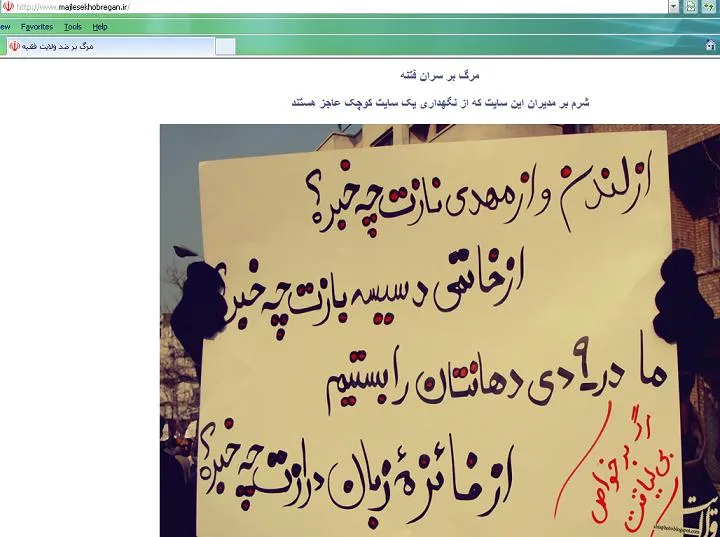 http://www.majlesekhobregan.ir/
ew Favorites Tools Help
مرگ بر ضد ولایت فقیه
مرگ بر سران فتنه
شرم بر مدیران این سایت که از نگهداری یک سایت کوچک عاجز هستند
از لندن و از مهدی نازت چه خبره؟
از خاتمی دسیسه بازت چه خبره؟
ما در ۹ دی دهانتان را بستیم
از فائزهٔ زبان درازت چه خبره؟
بر خواص
بی لیاقت